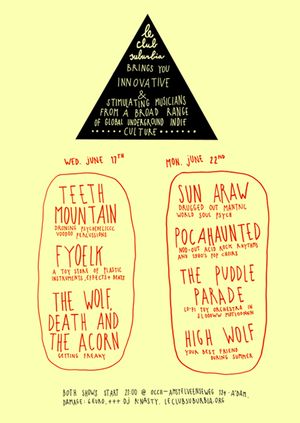 le
club
suburbia
BRINGS YOU
INNOVATIVE
&
STIMULATING MUSICIANS
FROM A BROAD RANGE
OF GLOBAL UNDERGROUND INDIE
CULTURE
WED. JUNE 17TH
TEETH
MOUNTAIN
DRONING PSYCHEDELICCC
VOODOO PERCUSSIONS
FYOELK
A TOY STORE OF PLASTIC
INSTRUMENTS, EFFECTS & BEATS
THE WOLF,
DEATH AND
THE ACORN
GETTING FREAKY
MON. JUNE 22ND
SUN ARAW
DRUGGED OUT MANTRIC
WORLD SOUL PSYCH
POCAHAUNTED
NOD-OUT ACID ROCK RHYTHMS
AND 1980'S POP CHOIRS
THE PUDDLE
PARADE
LO-FI TOY ORCHESTRA IN
HIGH WOLF
YOUR BEST FRIEND
DURING SUMMER
BOTH SHOWS START 21:00 @ OCCII - AMSTELVEENSEWEG 134 - A'DAM.
DAMAGE: 6 EURO. +++ DJ K'NASTY. LECLUBSUBURBIA.ORG